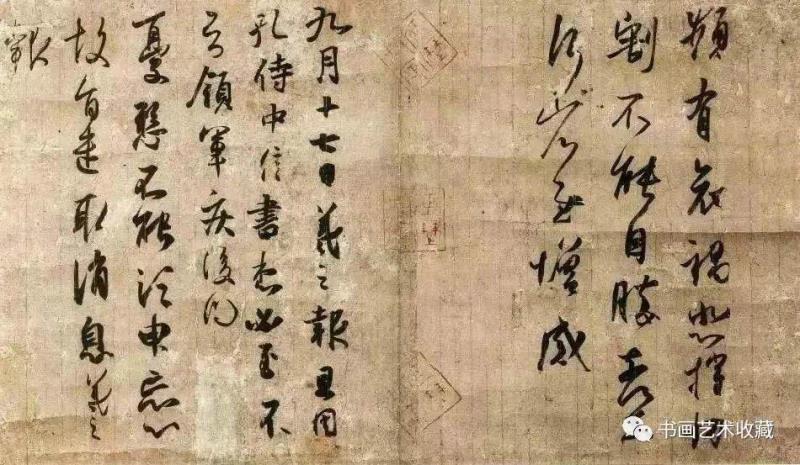 頻有哀禍悲摧切
割不能自勝奈何
奈何省慰增感
九月十七日羲之報且因
孔侍中信書想必至不
知領軍疾後問
憂懸不能須臾忘心
故旨遣取消息羲之
報
书画艺术收藏